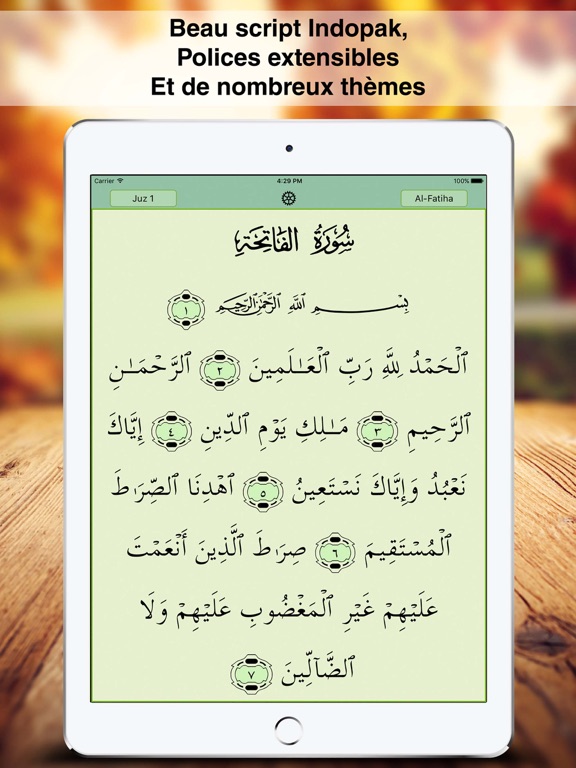 Beau script Indopak,
Polices extensibles
Et de nombreux thèmes
Carrier 4:29 PM 100%
Juz 1 Al-Fatiha
سُورَةُ الفَاتِحَةِ
بِسْمِ ٱللَّهِ ٱلرَّحْمَٰنِ ٱلرَّحِيمِ ١
ٱلْحَمْدُ لِلَّهِ رَبِّ ٱلْعَـٰلَمِينَ ٢ ٱلرَّحْمَـٰنِ
ٱلرَّحِيمِ ٣ مَـٰلِكِ يَوْمِ ٱلدِّينِ ٤ إِيَّاكَ
نَعْبُدُ وَإِيَّاكَ نَسْتَعِينُ ٥ ٱهْدِنَا ٱلصِّرَٰطَ
ٱلْمُسْتَقِيمَ ٦ صِرَٰطَ ٱلَّذِينَ أَنْعَمْتَ
عَلَيْهِمْ غَيْرِ ٱلْمَغْضُوبِ عَلَيْهِمْ وَلَا
ٱلضَّآلِّينَ ٧